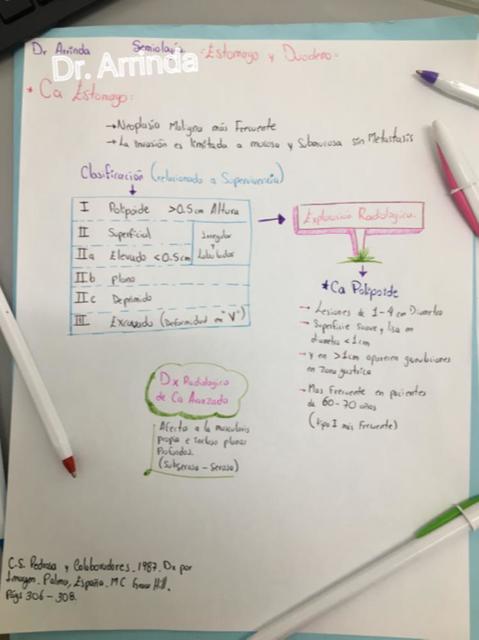 Dr Arrinda Semiología Estomago y Duodeno.
Dr. Arrinda
* Ca Estomago:
→ Neoplasia Maligna más Frecuente
→ La invasión es limitada a mucosa y Submucosa sin Metastasis
Clasificación (relacionado a Supervivencia)
I Polipoide >0.5cm Altura
II Superficial
IIa Elevado <0.5cm
Irregular
y
Lobulados
IIb plano
IIc Deprimido
III Excavado (Deformidad en "V")
Exploración Radiológica.
* Ca Polipoide
→ Lesiones de 1-4 cm Diametro
→ Superficie Suave y lisa en
diametro <1cm
→ y en >1cm aparecen
en zona gastrica
→ Mas Frecuente en pacientes
de 60-70 años
(tipo I más Frecuente)
Dx Radiologico
de Ca Avanzado
Afecta a la muscularis
propia e incluso planos
Profundos.
(Subserosa - Serosa)
C.S. Pedrosa y Colaboradores. 1987. Dx por
Imagen. Palma, España. MC Graw Hill.
Págs 306-308.